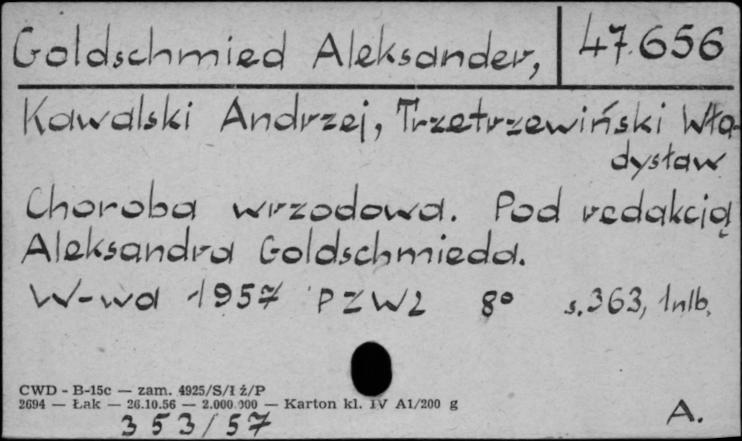 Goldschmied Aleksander, 47.656
Kawalski Andrzej, Trzetrzewiński Wła-
dysław
Choroba wrzodowa. Pod redakcją
Aleksandra Goldschmieda.
W-wa 1957 PZWL 8° s. 363, 1nlb.
CWD - B-15c — zam. 4925/S/I ż/P
2694 — Łak — 26.10.56 — 2.000.000 — Karton kl. IV A1/200 g
353/57
A.